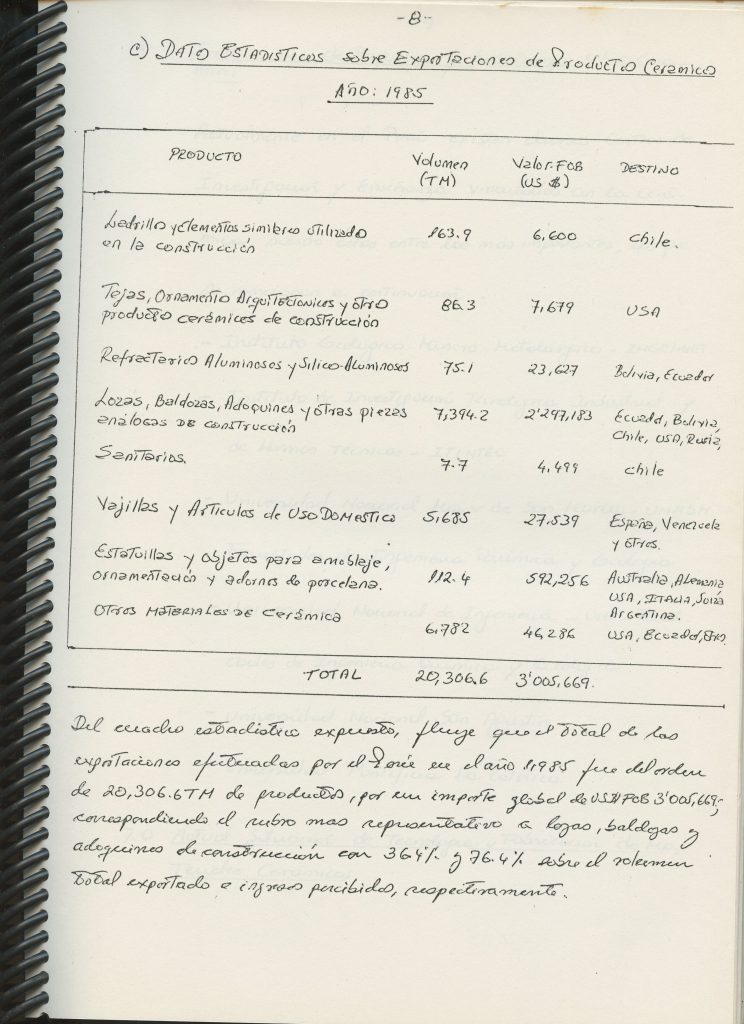 -8-
c) DATOS ESTADISTICOS sobre Exportaciones de Productos Cerámicos
AÑO: 1985
PRODUCTO Volumen (TM) Valor-FOB (US $) DESTINO
Ladrillo y elementos similares utilizados 163.9 6,600 Chile.
en la construcción
Tejas, Ornamento Arquitectonicos y otro 86.3 7,679 USA
producto cerámicos de construcción
Refractarios Aluminosos y Silico-Aluminosos 75.1 23,627 Bolivia, Ecuador
Lozas, Baldozas, Adoquines y otras piezas 7,394.2 2'297,183 Ecuador, Bolivia,
análogas DE construcción Chile, USA, Rusia,
Sanitarios. 7.7 4,499 chile
Vajillas y Articulos de USO DOMESTICO 5,685 27,539 España, Venezuela
y otros.
Estatuillas y objetos para amoblaje, 112.4 592,256 Australia, Alemania
ornamentación y adornos de porcelana. USA, ITALIA, Suiza
Argentina.
OTROS MATERIALES DE Cerámica
6,782 46,286 USA, Ecuador, Etro.
TOTAL 20,306.6 3'005,669.
Del cuadro estadistico expuesto, fluye que el total de las
exportaciones efectuadas por el Perú en el año 1,985 fue del orden
de 20,306.6 TM de productos, por un importe global de US$ FOB 3'005,669;
correspondiendo el rubro mas representativo a lozas, baldozas y
adoquines de construcción con 36.4% y 76.4% sobre el volumen
total exportado e ingresos percibidos, respectivamente.